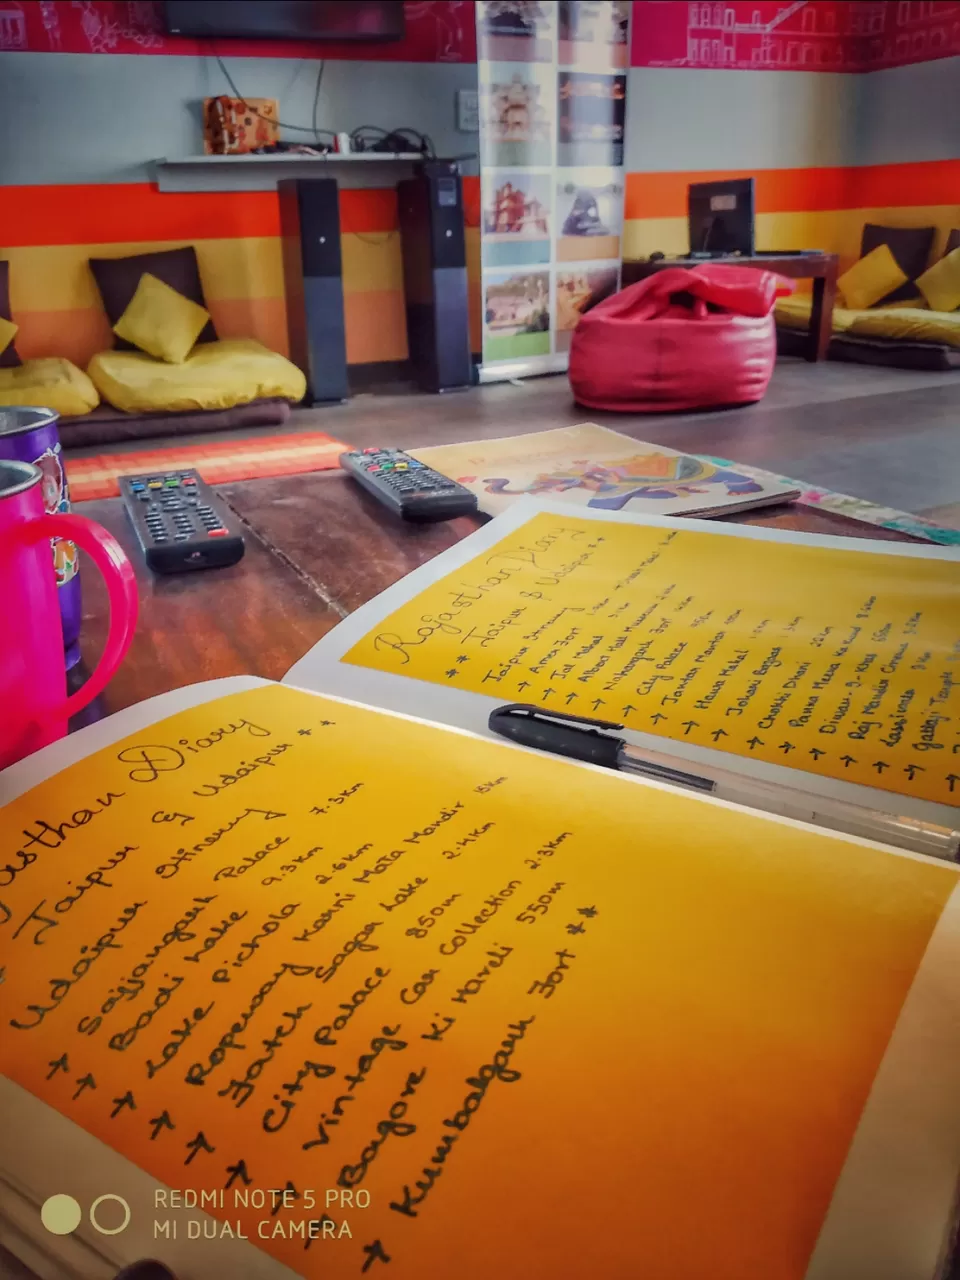 Rajasthan Diary
** Jaipur & Udaipur **
Jaipur Itinerary
→ Amer Fort
→ Jal Mahal
→ Albert Hall Museum
→ Nahargarh Fort
→ City Palace
→ Jantar Mantar
→ Hawa Mahal
→ Johari Bazaar
→ Chokhi Dhani
→ Panna Meena ka Kund
→ Diwan-I-Khas
→ Raj Mandir Cinema
→ Lassiwala
→ Galtaji Temple
Diary
Jaipur & Udaipur **
Udaipur Itinerary
→ Sajjangarh Palace 7.3km
→ Badi Lake 9.3km
→ Lake Pichola 2.6km
→ Ropeway Karni Mata Mandir
→ Fateh Sagar Lake 2.4km
→ City Palace 850m
→ Vintage Car Collection 2.3km
→ Bagore Ki Haveli 550m
→ Kumbalgarh Fort **
REDMI NOTE 5 PRO
MI DUAL CAMERA